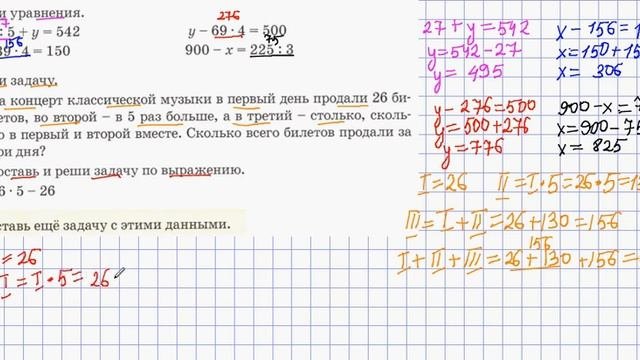 и уравнения.
7 276
: 5 + y = 542 y − 69 · 4 = 500
156 75
39 · 4 = 150 900 − x = 225 : 3
и задачу.
а концерт классической музыки в первый день продали 26 би-
етов, во второй − в 5 раз больше, а в третий − столько, сколь-
о в первый и второй вместе. Сколько всего билетов продали за
ри дня?
оставь и реши задачу по выражению.
6 · 5 − 26
оставь ещё задачу с этими данными.
27 + y = 542
y = 542 − 27
y = 495
x − 156 = 1
x = 150 + 15
x = 306
y − 276 = 500
y = 500 + 276
y = 776
900 − x = 7
x = 900 − 75
x = 825
I = 26 II = I · 5 = 26 · 5 = 13
III = I + II = 26 + 130 = 156
156
I + II + III = 26 + 130 + 156 =
= 26
I = I · 5 = 26